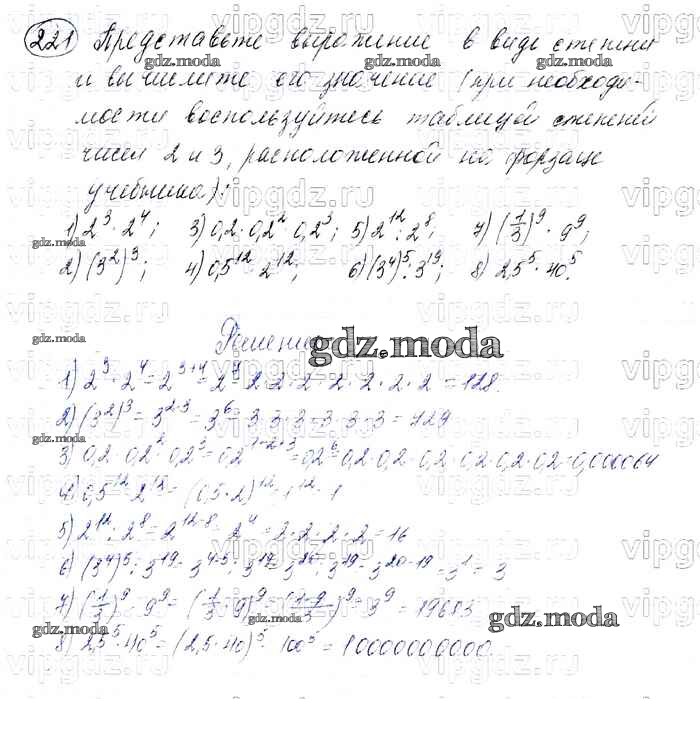 221 Представьте выражение в виде степени
и вычислите его значение (при необходи-
мости воспользуйтесь таблицой степеней
чисел 2 и 3, расположенной на форзаце
учебника):
1) 2³ · 2⁴; 3) 0,2 · 0,2² · 0,2³; 5) 2¹² : 2⁸; 7) (1/3)⁹ · 9⁹;
2) (3²)³; 4) 0,5¹² · 2¹²; 6) (3⁴)⁵ : 3¹⁹; 8) 2,5⁵ · 40⁵.
Решение
1) 2³ · 2⁴ = 2³⁺⁴ = 2⁷ = 2 · 2 · 2 · 2 · 2 · 2 · 2 = 128.
2) (3²)³ = 3²·³ = 3⁶ = 3 · 3 · 3 · 3 · 3 · 3 = 729
3) 0,2 · 0,2² · 0,2³ = 0,2¹⁺²⁺³ = 0,2⁶ = 0,2 · 0,2 · 0,2 · 0,2 · 0,2 · 0,2 = 0,000064
4) 0,5¹² · 2¹² = (0,5 · 2)¹² = 1¹² = 1
5) 2¹² : 2⁸ = 2¹²⁻⁸ = 2⁴ = 2 · 2 · 2 · 2 = 16
6) (3⁴)⁵ : 3¹⁹ = 3⁴·⁵ : 3¹⁹ = 3²⁰ : 3¹⁹ = 3²⁰⁻¹⁹ = 3¹ = 3
7) (1/3)⁹ · 9⁹ = (1/3 · 9)⁹ = (1·9/3)⁹ = 3⁹ = 19683
8) 2,5⁵ · 40⁵ = (2,5 · 40)⁵ = 100⁵ = 10000000000.
gdz.moda
vipgdz.ru